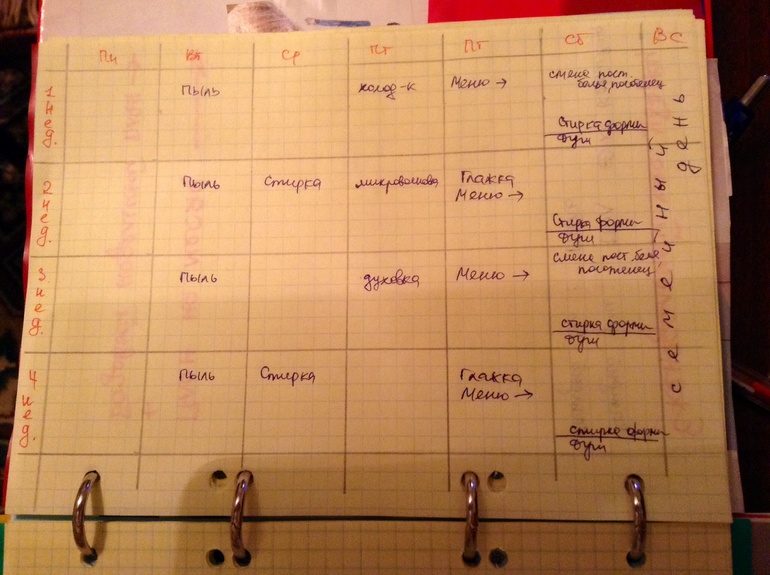 Пн Вт Ср Пт Пт Сб ВС
1 нед.
Пыль
холод-к
Меню →
смена пост. белья, полотенец
Стирка формы
Дуги
2 нед.
Пыль
Стирка
микроволновка
Глажка
Меню →
Стирка формы
Дуги
3 нед.
Пыль
духовка
Меню →
смена пост. белья
полотенец
стирка формы
Дуги
4 нед.
Пыль
Стирка
Глажка
Меню →
стирка формы
Дуги
семейный день